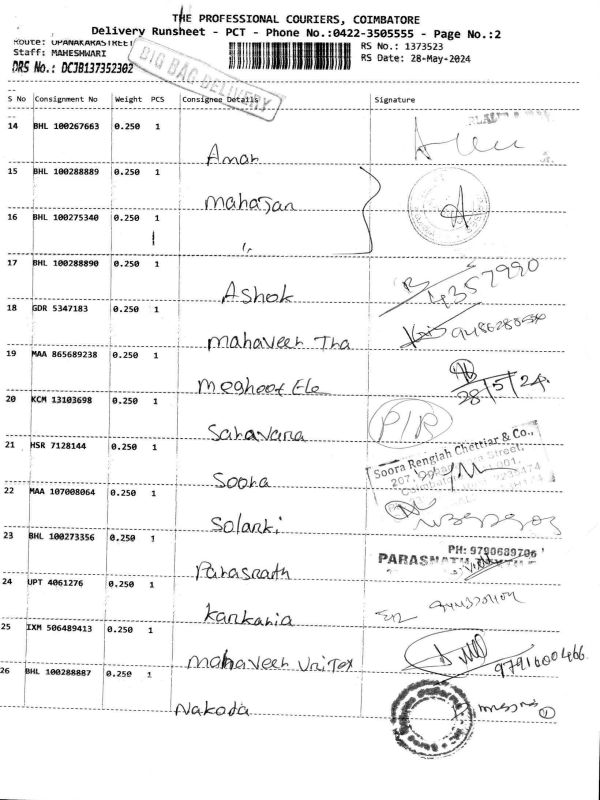 THE PROFESSIONAL COURIERS, COIMBATORE
Delivery Runsheet - PCT - Phone No.:0422-3505555 - Page No.:2
Route: UPANAKARASTREET
RS No.: 1373523
Staff: MAHESHWARI
RS Date: 28-May-2024
DRS No.: DCJB137352302
BIG BAG DELIVERY
S No Consignment No Weight PCS Consignee Details Signature
14 BHL 100267663 0.250 1
Amar
15 BHL 100288889 0.250 1
Mahajan
16 BHL 100275340 0.250 1
17 BHL 100288890 0.250 1
Ashok
4357990
18 GDR 5347183 0.250 1
Mahaveer Tha
19 MAA 865689238 0.250 1
Meghoot Ele
28/5/24
20 KCM 13103698 0.250 1
P/R
Saravana
21 HSR 7128144 0.250 1
Soora Rengiah Chettiar & Co.,
Soora
22 MAA 107008064 0.250 1
Solanki
23 BHL 100273356 0.250 1
PH: 9790689706
PARASNATH
Parasnath
24 UPT 4061276 0.250 1
Kankaria
25 IXM 506489413 0.250 1
Mahaveer UniTex
9791600466
26 BHL 100288887 0.250 1
Nakoda